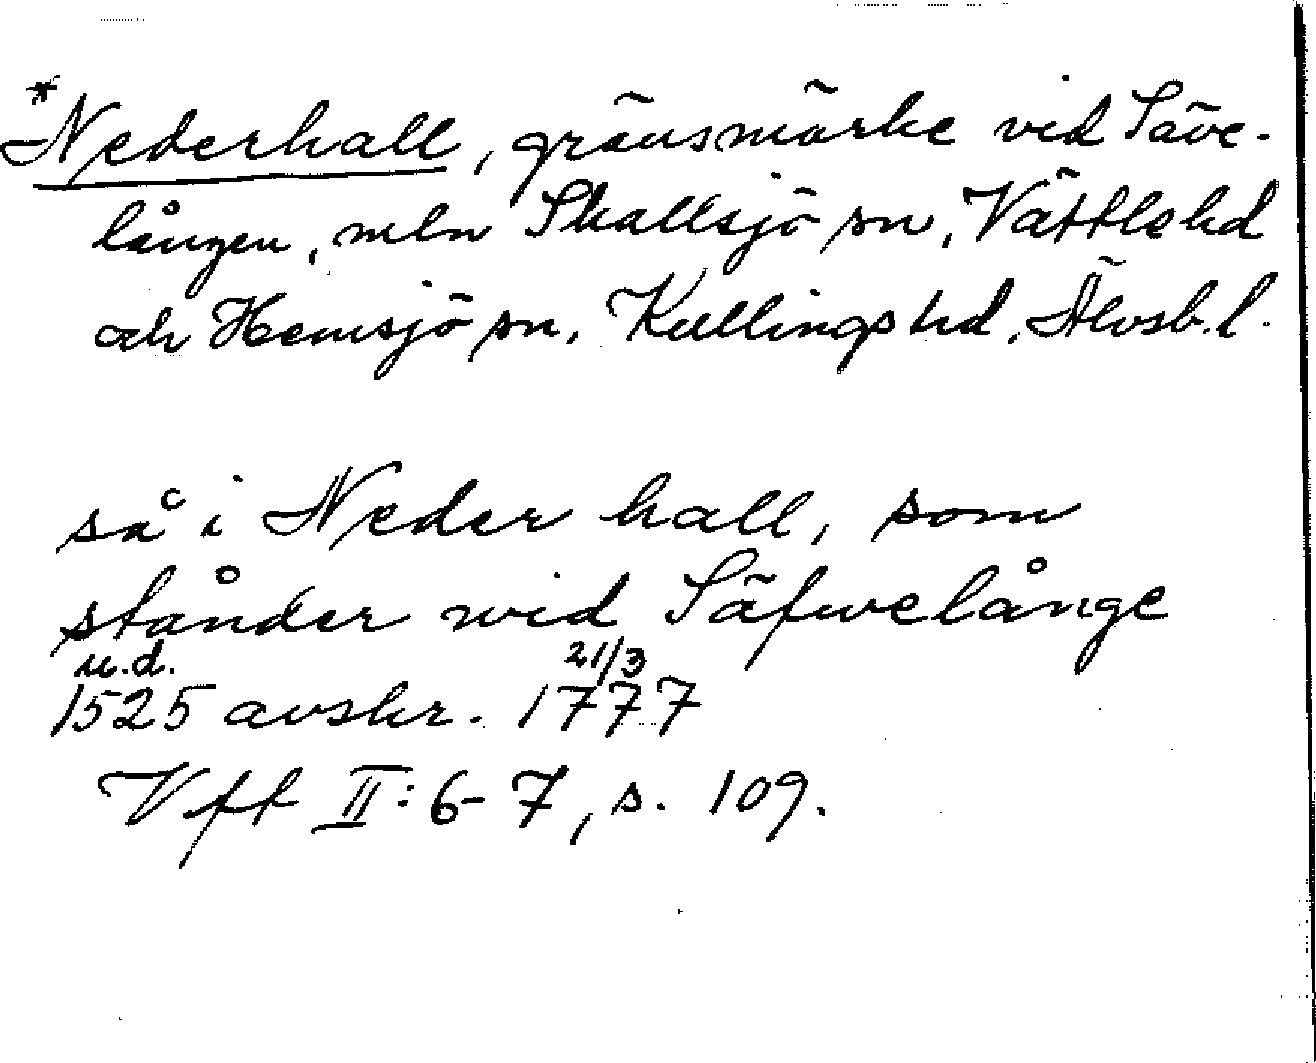 *Nederhall, gränsmärke vid Säve-
lången, mln Skallsjö sn, Vättle hd
och Hemsjö sn, Kullings hd, Älvsb. l.
så i Neder hall, som
ständer wid Säfwelånge
u.d. 21/3
1525 avskr. 1777
Vff II: 6-7, s. 109.